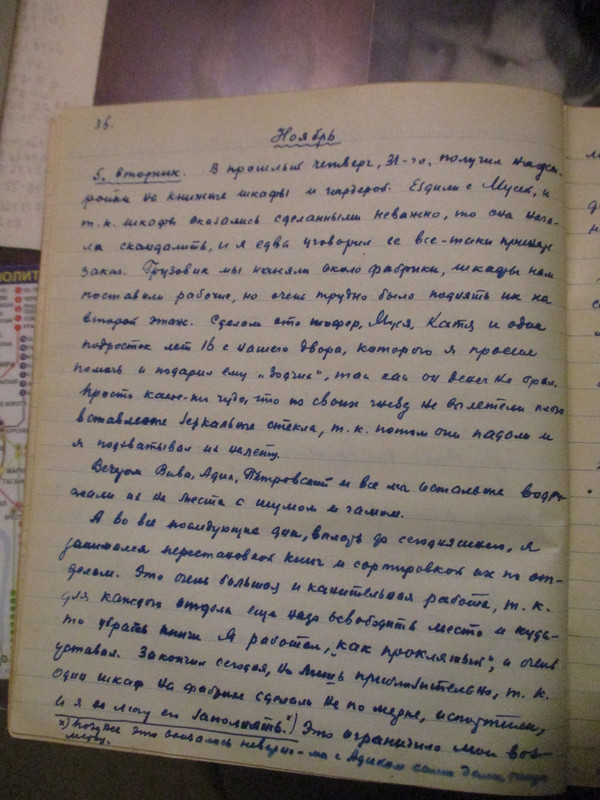 36.
Ноябрь
5, вторник. В прошлый четверг, 31-го, получил
на книжные шкафы и гардероб. Ездили с Мусей, и
т.к. шкафы оказались сделанными неважно, то она нача-
ла скандалить, и я едва уговорил ее все-таки принять
заказ. Грузовик мы наняли около фабрики, шкафы нам
поставили рабочие, но очень трудно было поднять их на
второй этаж. Сделали это шофер, Муся, Катя и один
подросток лет 16 с нашего двора, которого я просил
помочь и подарил ему „Зодчих“, так как он денег не брал.
Просто какое-то чудо, что из своих гнезд не вылетели плохо
вставленные зеркальные стекла, т.к. потом они падали и
я подхватывал их налету.
Вечером Вива, Адик, Петровский и все мы остальные водру-
жали их на места с шумом и гамом.
А во все последующие дни, вплоть до сегодняшнего, я
занимался перестановкой книг и сортировкой их по от-
делам. Это очень большая и канительная работа, т.к.
для каждого отдела еще надо освободить место и куда-
то убрать книги. Я работал, „как проклятый“, и очень
уставал. Закончил сегодня, но лишь приблизительно, т.к.
один шкаф на фабрике сделали не по мерке, испортили,
и я не могу его заполнять.*) Это ограничило мои воз-
*) позднее это оказалось неверно - мы с Адиком сами